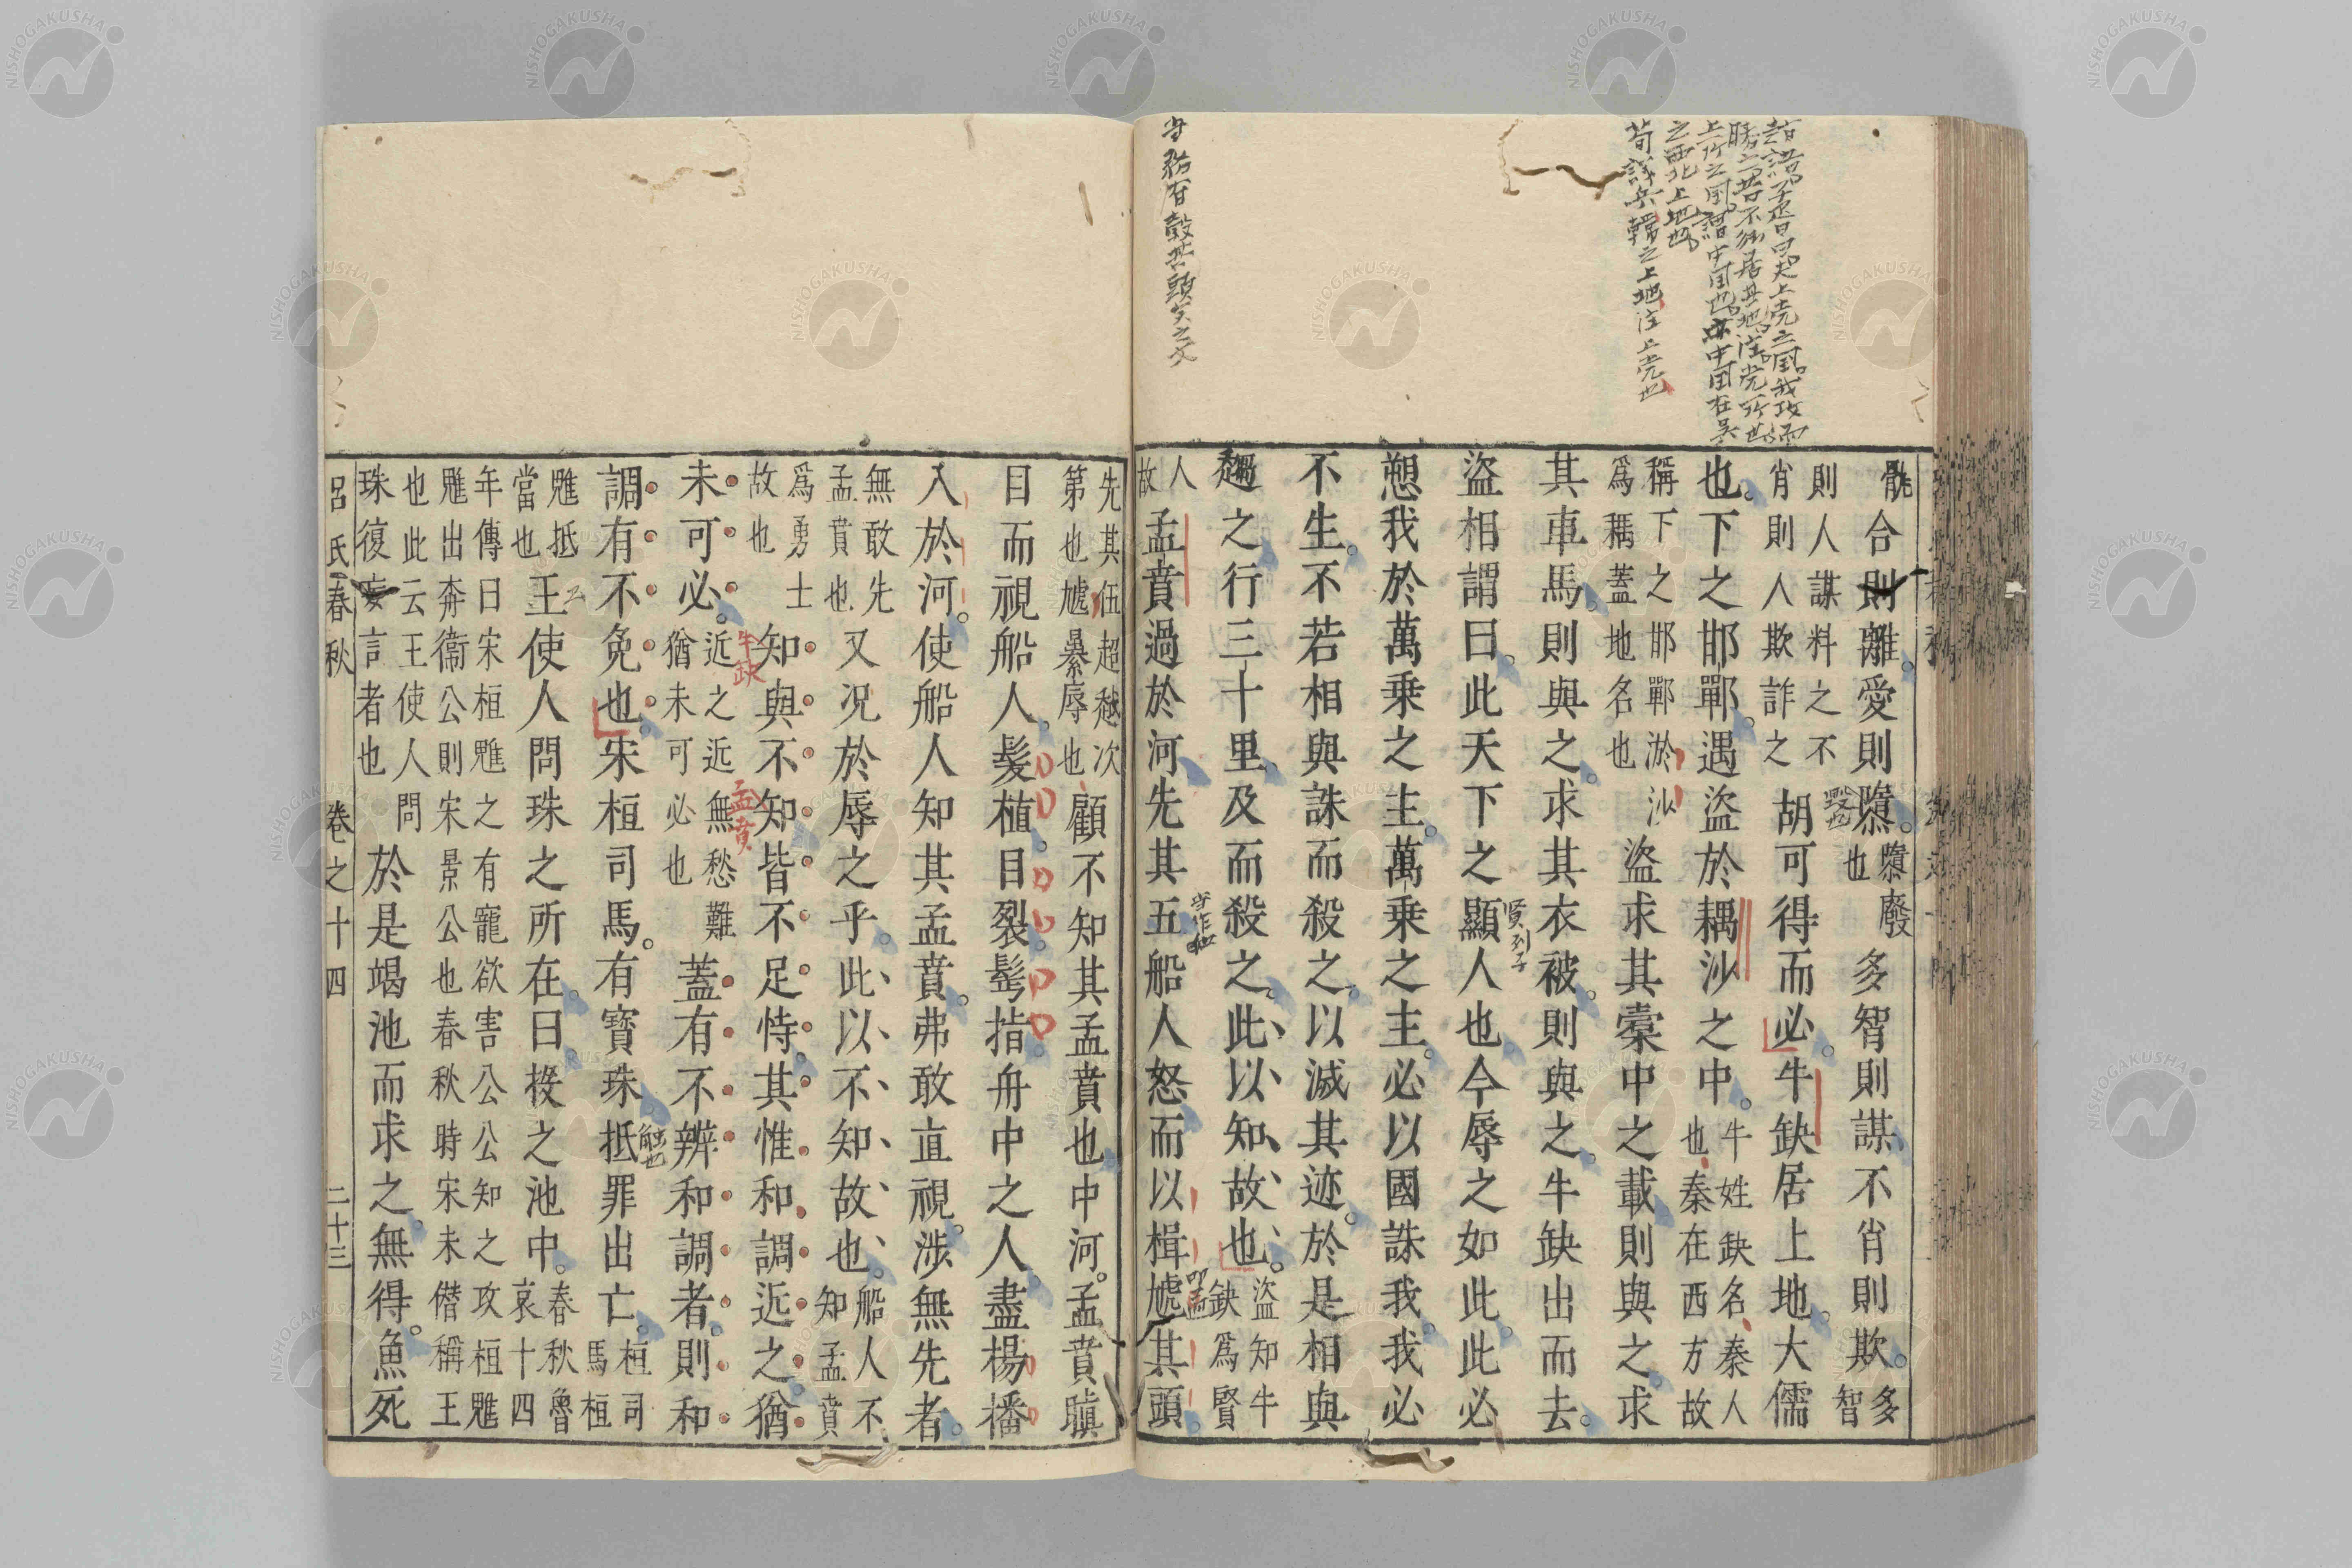 骫合則離愛則隳隳廢也多智則謀不肖則欺多智
則人謀料之不肖則人欺詐之胡可得而必牛缺居上地大儒
也下之邯鄲遇盜於耦沙之中牛姓缺名秦人也秦在西方故
稱下之邯鄲淤沙爲稱蓋地名也盜求其橐中之載則與之求
其車馬則與之求其衣被則與之牛缺出而去
盜相謂曰此天下之顯人也今辱之如此此必
愬我於萬乘之主萬乘之主必以國誅我我必
不生不若相與誅而殺之以滅其迹於是相與
趨之行三十里及而殺之此以知故也盜知牛缺爲賢
人故孟賁過於河先其五船人怒而以楫虓其頭
先其伍超越次第也虓暴辱也顧不知其孟賁也中河孟賁瞋
目而視船人髮植目裂鬢指舟中之人盡揚播
入於河使船人知其孟賁弗敢直視涉無先者
無敢先孟賁也又況於辱之乎此以不知故也船人不知孟賁
爲勇士故也知與不知皆不足恃其惟和調近之猶
未可必近之近無愁難猶未可必也蓋有不辨和調者則和
調有不免也宋桓司馬有寶珠抵罪出亡桓司馬桓
魋抵當也王使人問珠之所在曰投之池中春秋魯哀十四
年傳曰宋桓魋之有寵欲害公公知之攻桓魋魋出奔衞公則宋景公也春秋時宋未僭稱王
也此云王使人問珠復妄言者也於是竭池而求之無得魚死
呂氏春秋 卷之十四 二十三
荀議兵韓之上地注上党也
牛缺
孟賁
賢列子